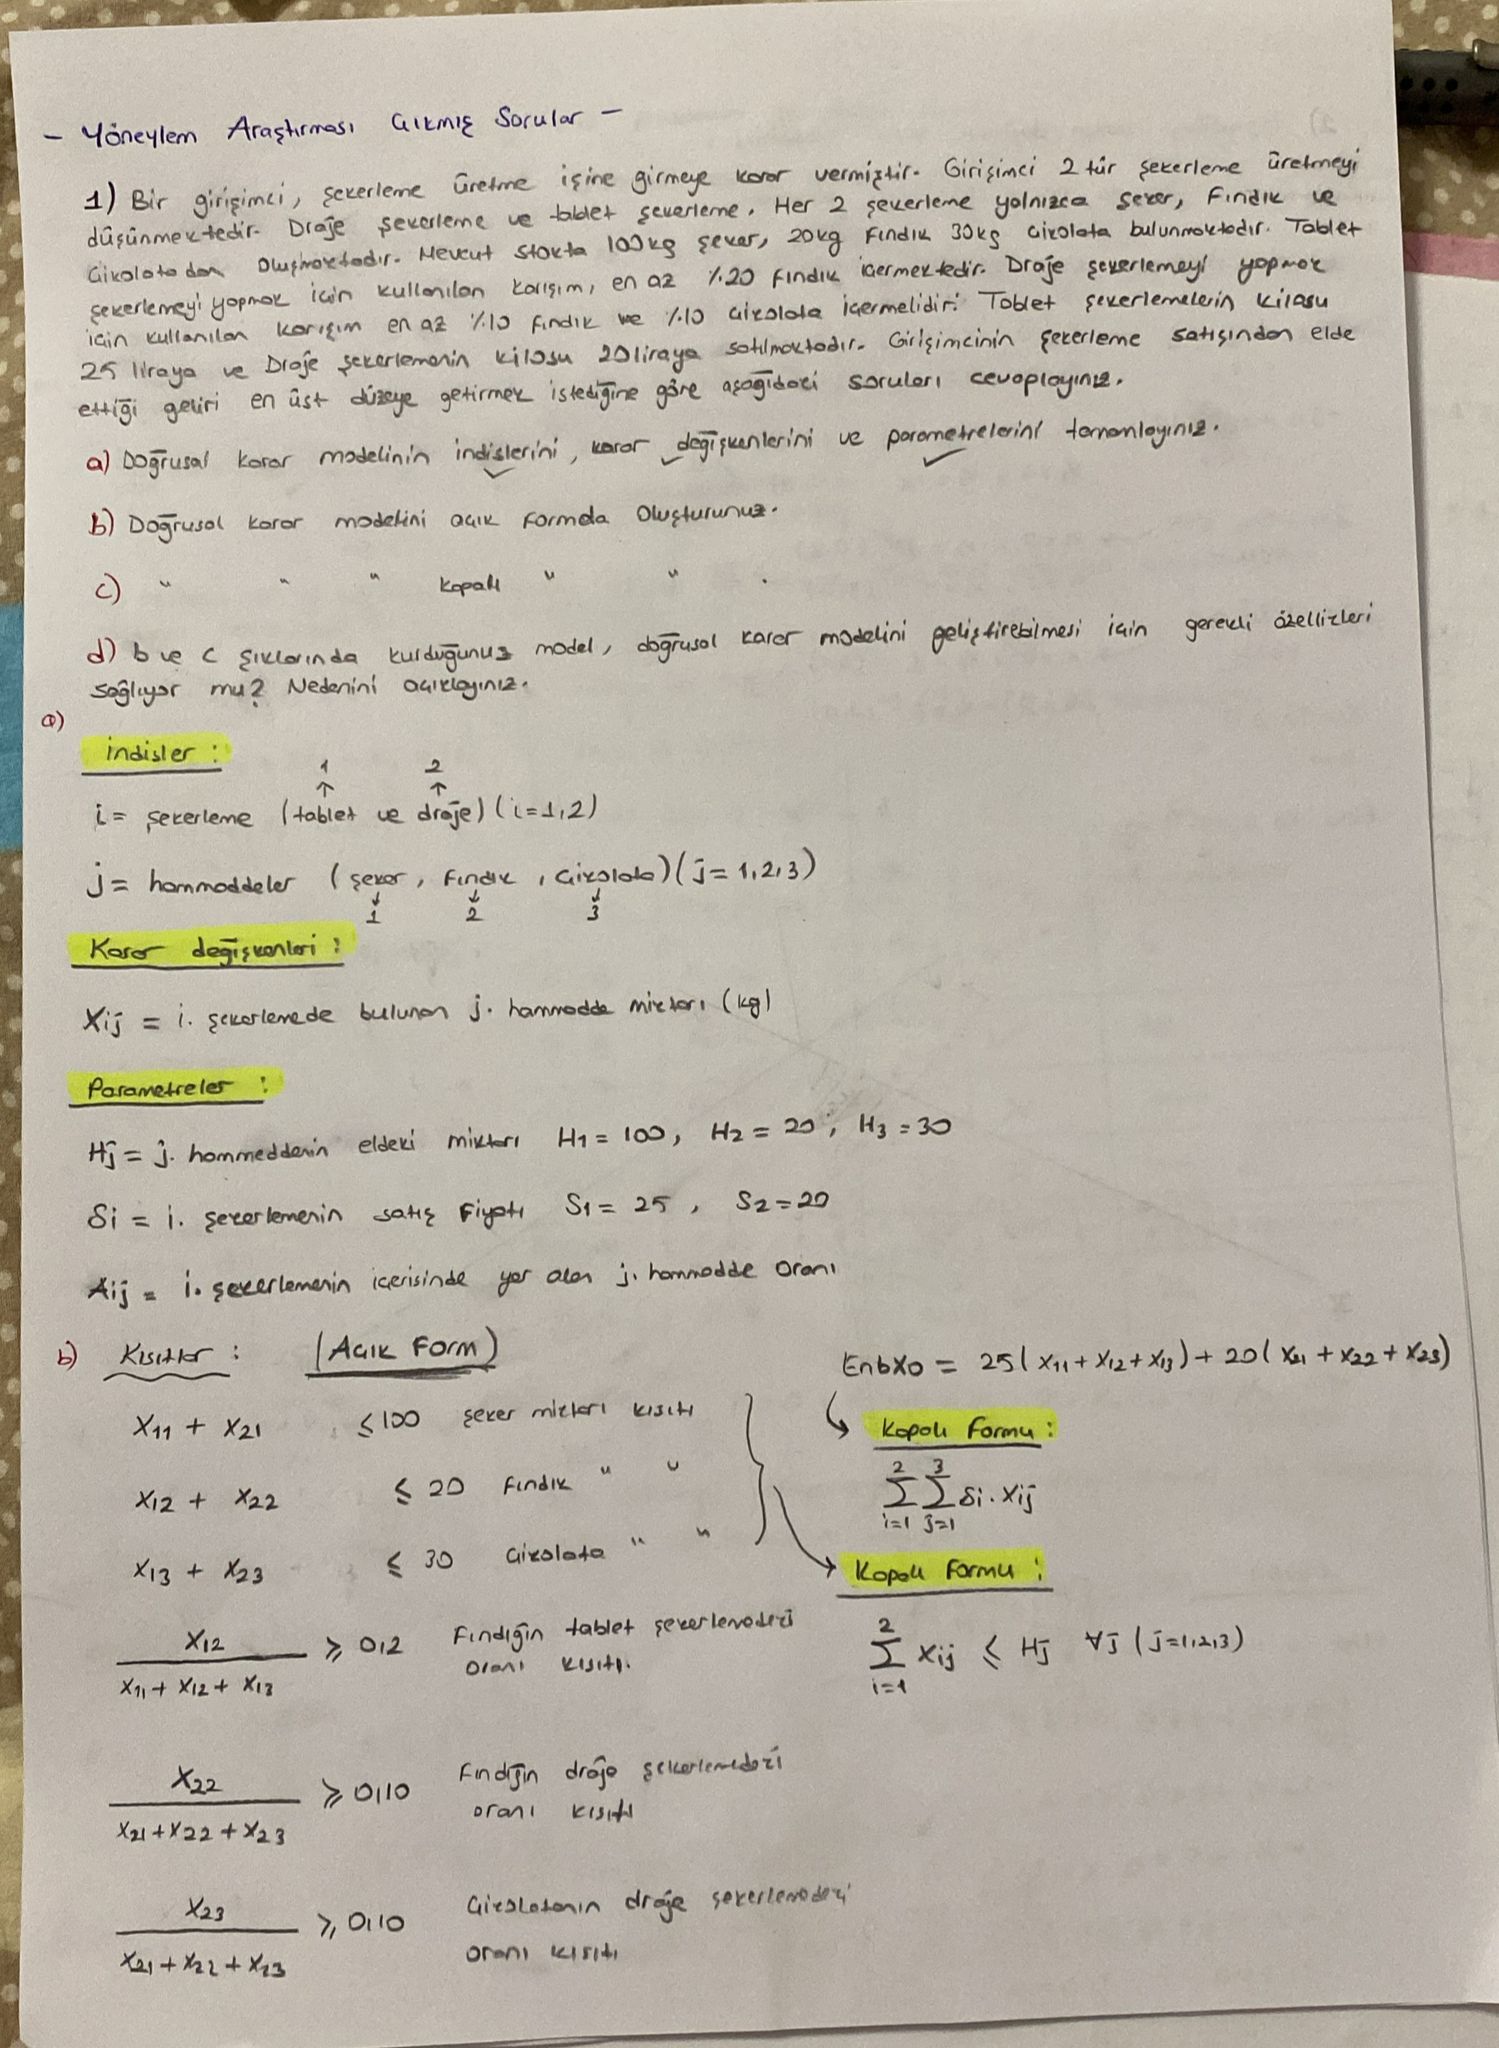 - Yöneylem Araştırması Çıkmış Sorular -
1) Bir girişimci, şekerleme üretme işine girmeye karar vermiştir. Girişimci 2 tür şekerleme üretmeyi
düşünmektedir. Draje şekerleme ve tablet şekerleme. Her 2 şekerleme yalnızca şeker, Fındık ve
Çikolatadan oluşmaktadır. Mevcut stokta 100kg şeker, 20kg Fındık 30kg çikolata bulunmaktadır. Tablet
şekerlemeyi yapmak için kullanılan karışım, en az %20 fındık içermektedir. Draje şekerlemeyi yapmak
için kullanılan karışım en az %10 fındık ve %10 çikolata içermelidir. Tablet şekerlemelerin kilosu
25 liraya ve Draje şekerlemenin kilosu 20liraya satılmaktadır. Girişimcinin şekerleme satışından elde
ettiği geliri en üst düzeye getirmek istediğine göre aşağıdaki soruları cevaplayınız.
a) Doğrusal karar modelinin indislerini, karar değişkenlerini ve parametrelerini tamamlayınız.
b) Doğrusal karar modelini açık formda oluşturunuz.
c) " " " kapalı " " .
d) b ve c şıklarında kurduğunuz model, doğrusal karar modelini geliştirebilmesi için gerekli özellikleri
sağlıyor mu? Nedenini açıklayınız.
a)
indisler :
1 2
↑ ↑
i = şekerleme (tablet ve draje) (i=1,2)
j = hammaddeler (şeker, Fındık, Çikolata) (j=1,2,3)
↓ ↓ ↓
1 2 3
Karar değişkenleri :
Xij = i. şekerlemede bulunan j. hammadde miktarı (kg)
Parametreler :
Hj = j. hammeddenin eldeki miktarı H1 = 100, H2 = 20, H3 = 30
Si = i. şekerlemenin satış Fiyatı S1 = 25, S2 = 20
Aij = i. şekerlemenin içerisinde yer alan j. hammadde oranı
b) Kısıtlar : (Açık Form)
EnbX0 = 25(X11 + X12 + X13) + 20(X21 + X22 + X23)
X11 + X21 ≤ 100 şeker miktarı kısıtı
Kapalı Formu :
X12 + X22 ≤ 20 Fındık " "
2 3
∑ ∑ Si . Xij
i=1 j=1
X13 + X23 ≤ 30 Çikolata " "
Kapalı Formu :
X12 / X11 + X12 + X13 ≥ 0,2 Fındığın tablet şekerlemedeki
oranı kısıtı.
2
∑ Xij ≤ Hj ∀j (j=1,2,3)
i=1
X22 / X21 + X22 + X23 ≥ 0,10 Fındığın draje şekerlemedeki
oranı kısıtı
X23 / X21 + X22 + X23 ≥ 0,10 Çikolatanın draje şekerlemedeki
oranı kısıtı